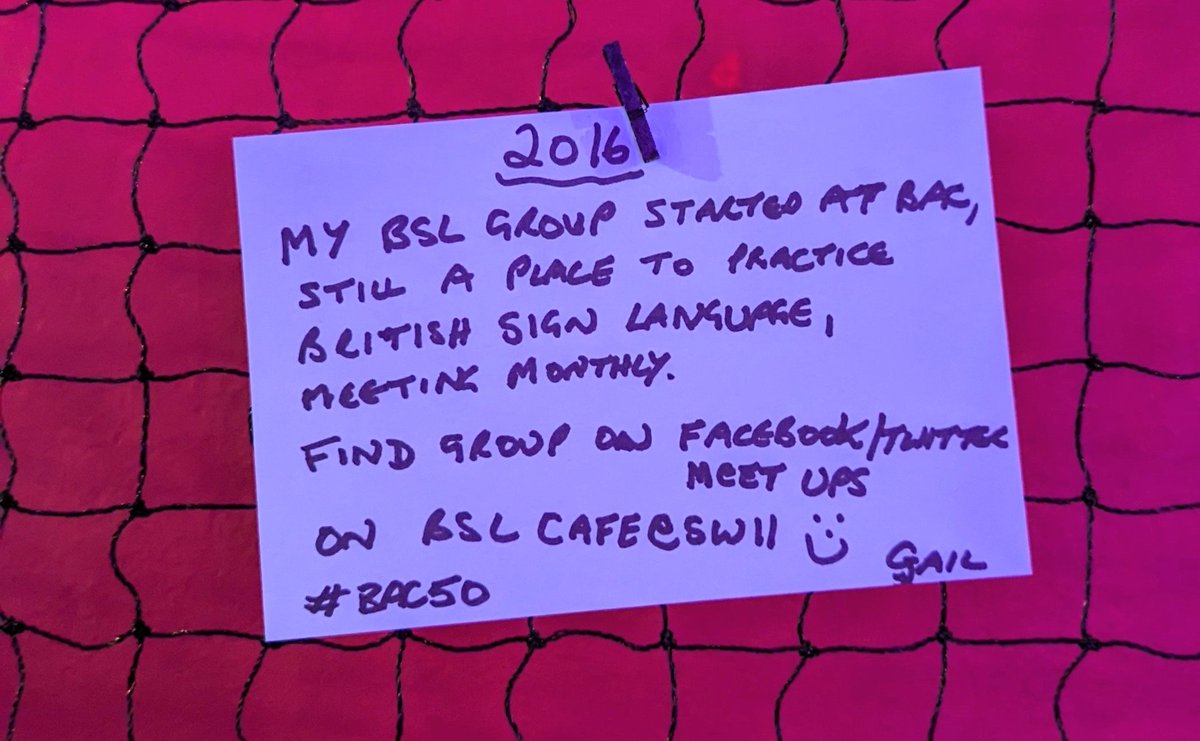 2016
MY BSL GROUP STARTED AT BAC,
STILL A PLACE TO PRACTICE
BRITISH SIGN LANGUAGE,
MEETING MONTHLY.
FIND GROUP ON FACEBOOK/TWITTER
MEET UPS
ON BSL CAFE@SW11 :)
GAIL
#BAC50